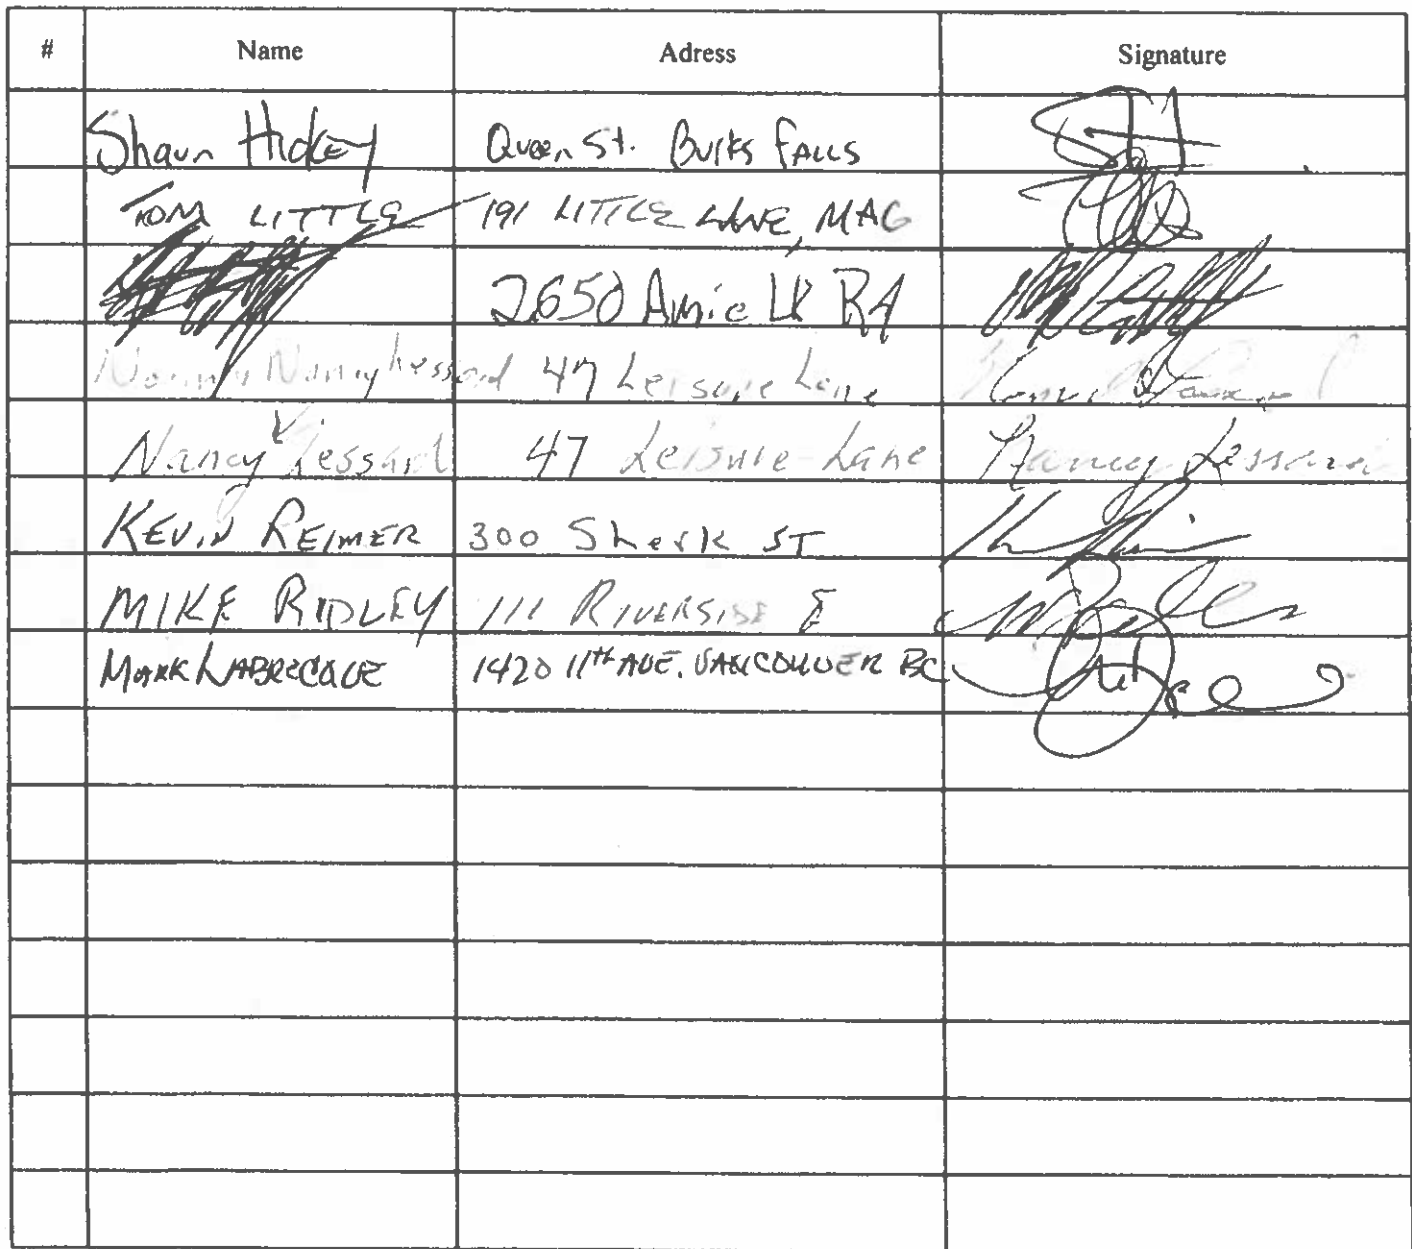 # Name Adress Signature
Shaun Hickey Queen St. Burks Falls
TOM LITTLE 191 LITTLE LANE, MAG
2650 Lk Rd
Nancy Lessard 47 Leisure Lane
Nancy Lessard 47 Leisure Lane Nancy Lessard
KEVIN REIMER 300 Sherk ST
MIKE RIDLEY 111 RIVERSIDE E
MARK LABRECQUE 1420 11th AVE. VANCOUVER BC